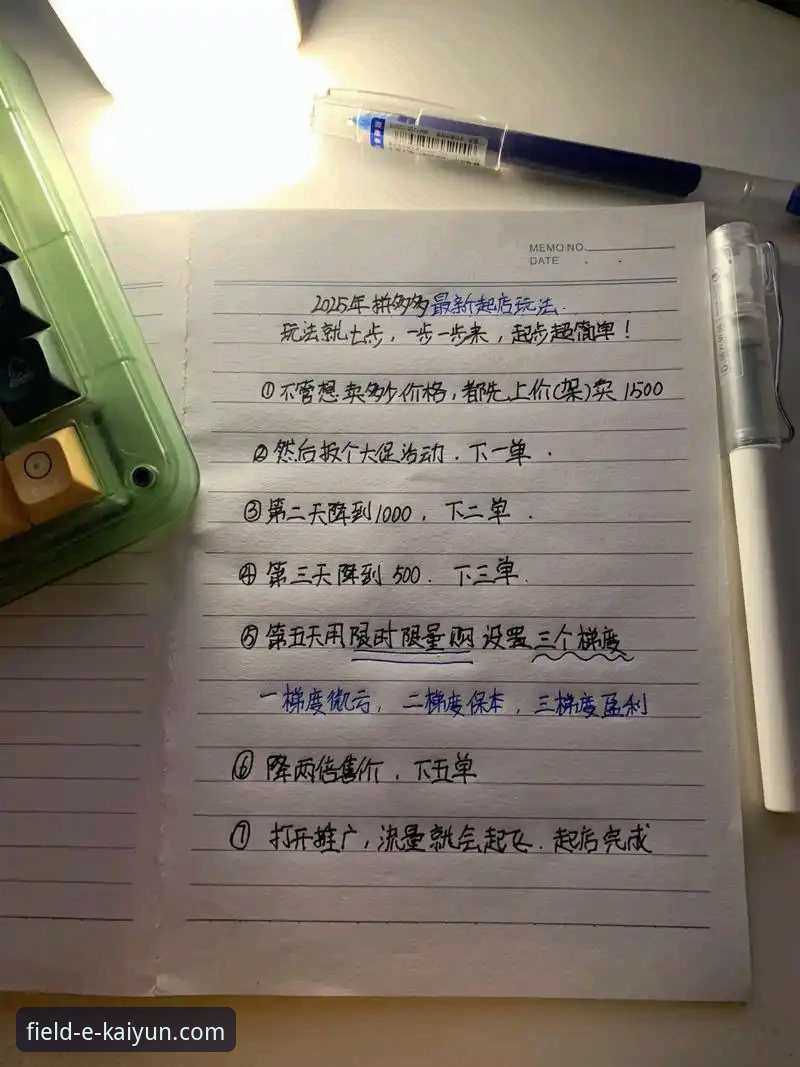 MEMO NO.
DATE
2025年拼多多最新起店玩法.
玩法就七步，一步一步来，起步超简单！
①不管想卖多少价格，都先上价(架)卖1500
②然后报个大促活动．下一单．
③第二天降到1000．下二单．
④第三天降到500．下三单．
⑤第五天用限时限量购设置三个梯度
一梯度微亏，二梯度保本，三梯度盈利
⑥降两倍售价．下五单
⑦打开推广，流量就会起飞．起店完成
field-e-kaiyun.com